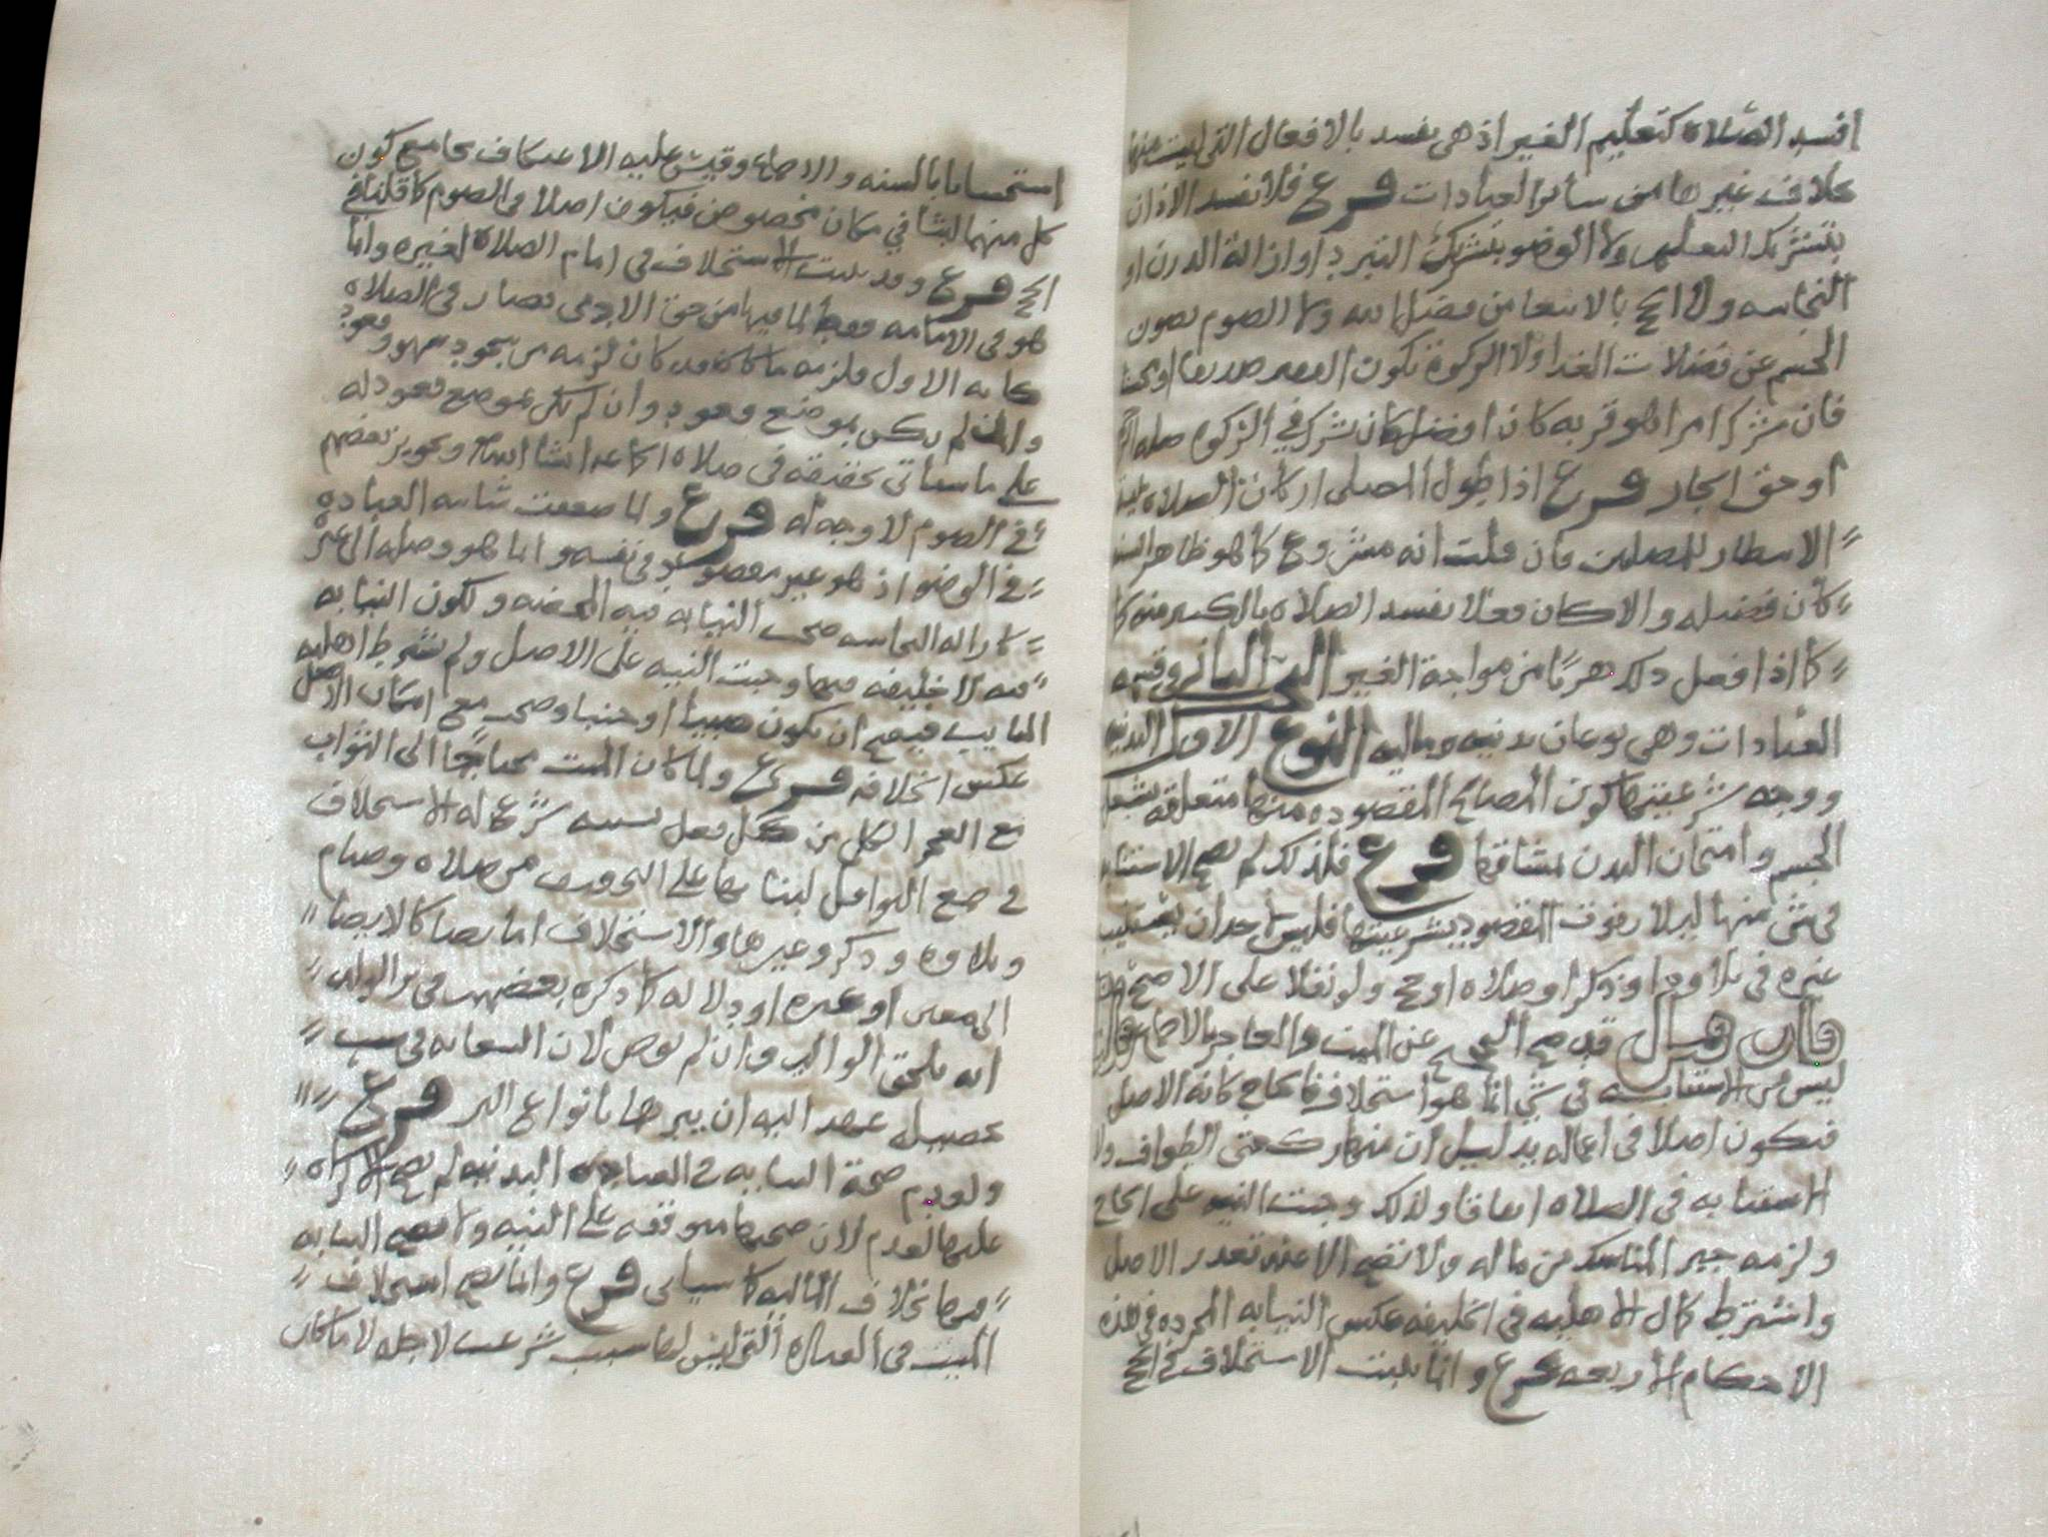 افسد الصلاة كتعليم الغير اذ هي تفسد بالافعال التي ليست منها
بخلاف غيرها من سائر العبادات فرع فلا تفسد الاذان
بتشريك التعليم ولا الوضو بتشريك التبرد او ازالة الدرن او
النجاسه ولا الحج بالابتغا من فضل الله ولا الصوم بصون
الجسم عن فضلات الغدا ولا الزكوة بكون الفقير صديقا او
فان شرك امرا هو قربه كان افضل كان يشرك في الزكوة صله
او حق الجار فرع اذا طول المصلي اركان الصلاه
الانتظار للمصلين فان قلت انه مشروع كما هو ظاهر
كان فضيله والا كان فعلا يفسد الصلاة بالكثير منه
كما اذا فعل ذلك هربًا من مواجهة الغير البحث الثاني في قسمة
العبادات وهي نوعان بدنيه وماليه النوع الاول البدنيه
ووجه شرعيتها كون المصالح المقصوده منها متعلقه
الجسم وامتحان البدن بمشاقها فرع فلذلك لم تصح الاستنابه
في شي منها ليلا يفوت المقصود بشرعيتها فليس لاحد ان يستنيب
غيره في تلاوة او ذكر او صلاة او حج ولو نفلا على الاصح
فان قيل قد صح الحج عن الميت والعاجز بالاجماع
ليس من الاستنابه في شي انما هو استخلاف فالحاج كانه الاصل
فيكون اصلا في اعماله بدليل ان منها ركعتي الطواف ولا
استنابه في الصلاه اتفاقا ولذلك وجبت النيه على الحاج
ولزمه جبر المناسك من ماله ولا تصح الا عند تعذر الاصل
واشترط كمال الاهليه في الخليفه عكس النيابه المجرده في هذه
الاحكام الاربعه فرع وانما يثبت الاستخلاف في الحج
استحسانا بالسنه والاجماع وقيس عليه الاعتكاف بجامع كون
كل منهما لبثا في مكان مخصوص فيكون اصلا في الصوم كما قلنا في
الحج فرع وقد يثبت الاستخلاف في امام الصلاة لغيره وانما
هو في الامامه فقط لما فيها من حق الادمي فصار في الصلاه
كانه الاول فلزمه ما كان قد كان لزمه من سجود سهو وقعود
وان لم يكن بموضع قعود وان لم يكن بموضع قعود له
على ما سياتي تحقيقه في صلاة الجماعه ان شا الله وتجويز بعضهم
في الصوم لا وجه له فرع ولما ضعفت شايبه العباده
في الوضو اذ هو غير مقصود في نفسه وانما هو وصله الى غيره
كازاله النجاسه صحت النيابه فيه المحضه ولكون النيابه
فيه لا خليفه فيها وجبت النيه على الاصل ولم تشترط اهليه
النايب فيصح ان يكون صبيا او جنبا وصحت مع امكان الاصل
عكس الخلافه فرع ولما كان الميت محتاجًا الى الثواب
مع العجز الكلي من كل فعل بنفسه شرع له الاستخلاف
في جميع النوافل لبنايها على التخفيف من صلاه وصيام
وتلاوه وذكر وغيرها والاستخلاف اما نصا كالايصا
الى معين او غيره او دلاله كما ذكره بعضهم في بر الولد
انه يلحق الوالد وان لم يوص لان السعايه في سبب
تحصيله عهد اليه ان يبرها بانواع البر فرع
ولعدم صحة النيابه في العباده البدنيه لم يصح الاكراه
عليها لعدم لان صحتها متوقفه على النيه ولا تصح النيابه
فيها بخلاف الماليه كما سياتي فرع وانما يصح استخلاف
الميت في العباده التي ليس لها سبب شرعت لاجله لا ما كان